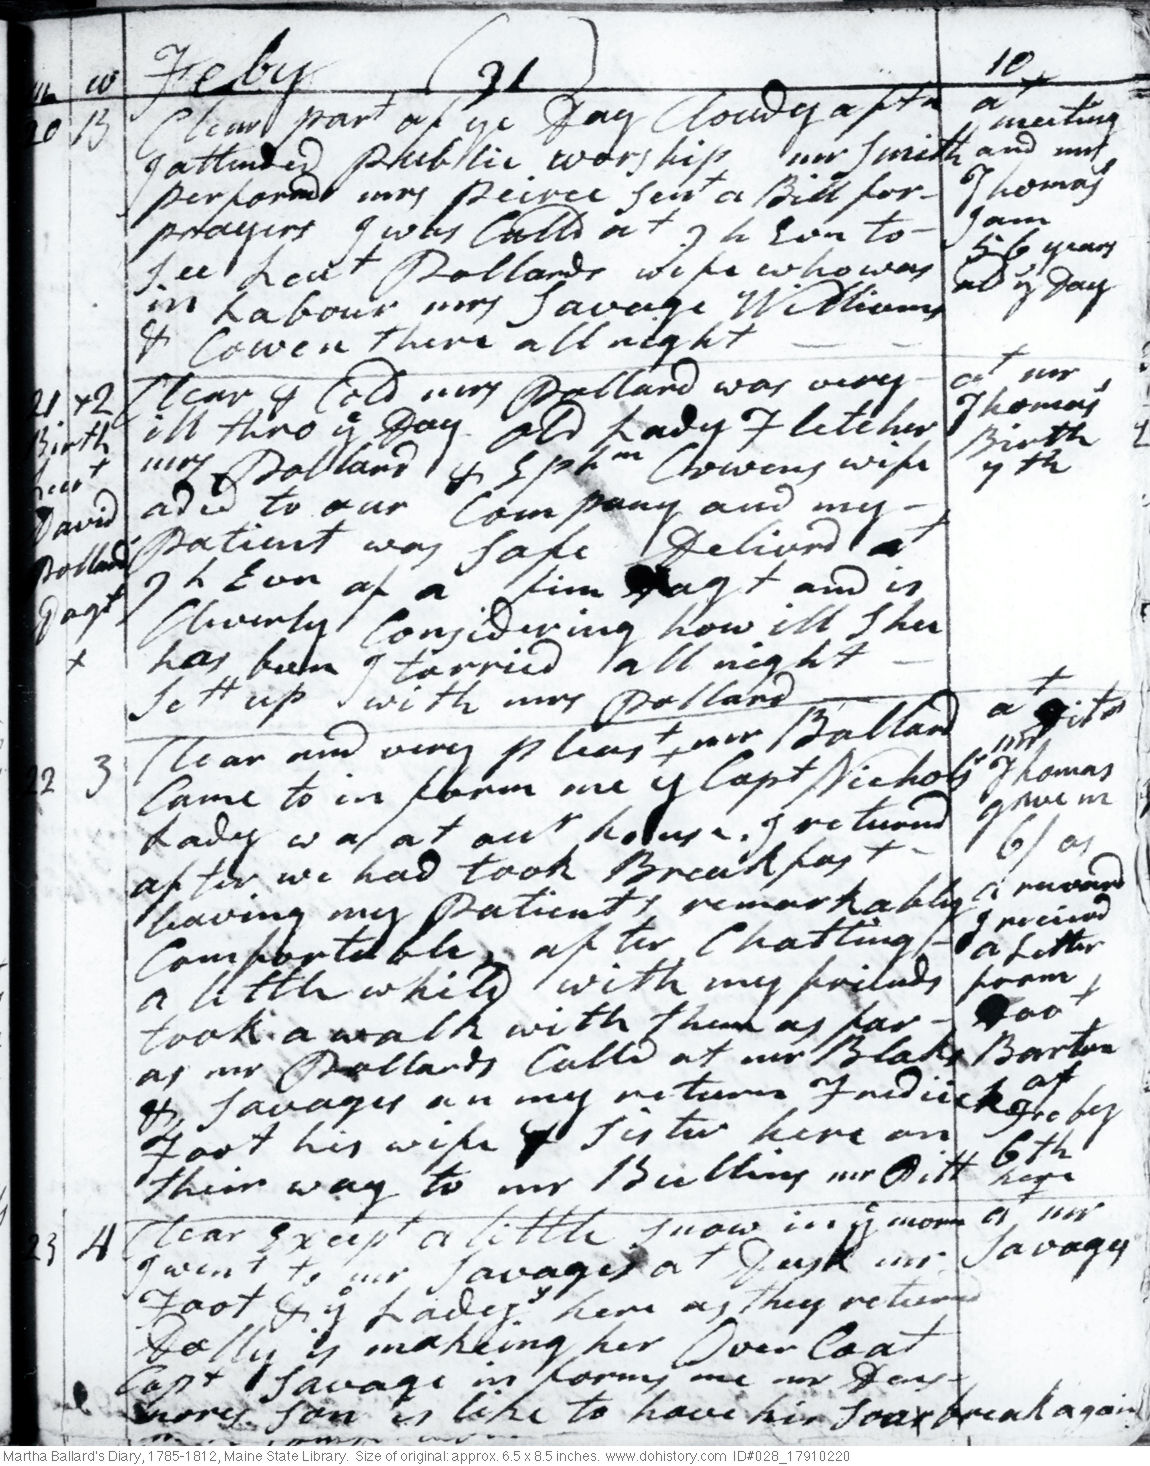 Feby (91) 10
m w
20 B Clear part of ye Day Cloudy aftn
I attended Publie worship mr Smith
performd mrs Peirce sent a Bill for
prayers I was Calld at 7 h Evn to
see Leut Pollards wife who was
in Labour mrs Savage Williams
& Cowen there all night
at
meeting
and mr
Thomas'
I am
56 years
old ys Day
21 x2 Clear & Cold mrs Pollard was very
ill thro ys Day old Lady Fletcher
mrs Pollard & Ephm Cowens wife
aded to our Company and my
Patient was safe Deliverd at
7 h Evn of a fine Dagt and is
Cleverly Considering how ill shee
has been I tarried all night
sett up with mrs Pollard
Birth
Leut
David
Pollards
Dagt
x
at mr
Thomas'
Birth
7th
22 3 Clear and very pleast mr Ballard
Came to inform me yt Capt Nichols'
Lady was at our house. I returnd
after we had took Breakfast
leaving my Patients remarkably
Comfortable, after Chatting
a little while with my friends
took a walk with them as far
as mr Pollards Calld at mr Blaks
& Savages on my return Fredrick
Foot his wife & sister here on
their way to mr Bullins mr Pitt
at Pits
mr
Thomas
gave m
6/ as
a reward
I receivd
a Letter
from
Doct
Barton
of
Feby
6th
here
23 4 Clear Except a little snow in ys morn
I went to mr Savages at Dusk mr
Foot & ys Ladeys here as they returnd
Dolly is makeing her Over Coat
Capt Savage informs me mr Dens-
mores son is like to have his soar break again
at mr
Savages
Martha Ballard's Diary, 1785-1812, Maine State Library. Size of original: approx. 6.5 x 8.5 inches. www.dohistory.com ID#028_17910220